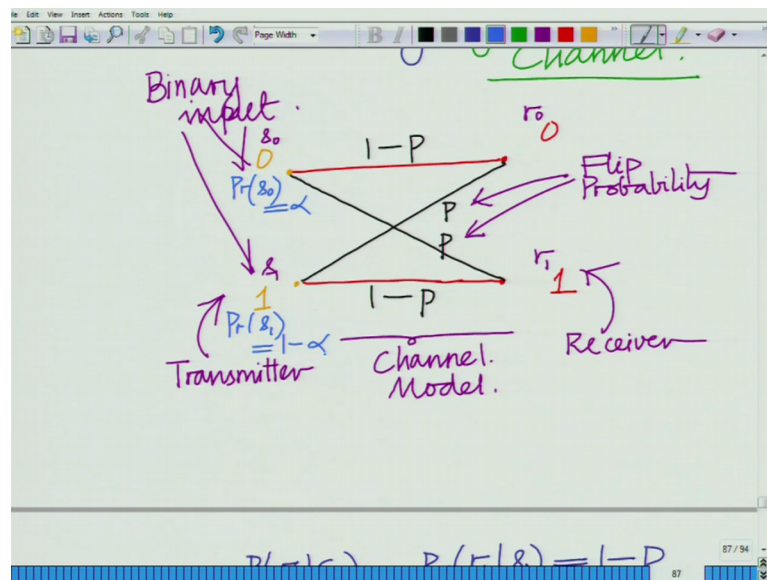 File Edit View Insert Actions Tools Help
Page Width
B I
Channel.
Binary
input.
s₀
0
Pr(s₀)
= α
1-P
r₀
0
Flip
Probability
P
P
s₁
1
Pr(s₁)
= 1-α
1-P
r₁
1
Transmitter
Channel
Model.
Receiver
= 1-P
87 / 94
87